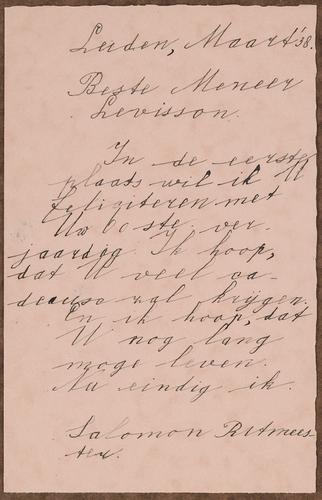 Leiden, Maart '38.
Beste Meneer
Levisson.
In de eerste
plaats wil ik U
feliziteren met
Uw 60ste ver-
jaardag. Ik hoop,
dat U veel ca-
deaus zal krijgen.
En ik hoop, dat
U nog lang
moge leven.
Nu eindig ik.
Salomon Ritmees-
ter.